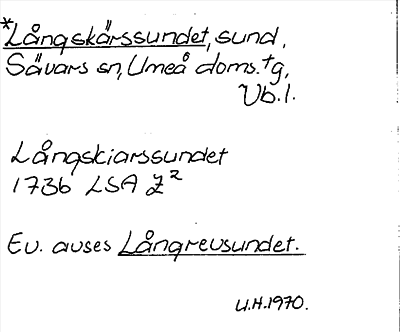 *Långskärssundet, sund,
Sävars sn, Umeå doms. tg,
Vb. l.
Långskiarssundet
1736 LSA Z²
Ev. avses Långrevsundet.
U.H. 1970.